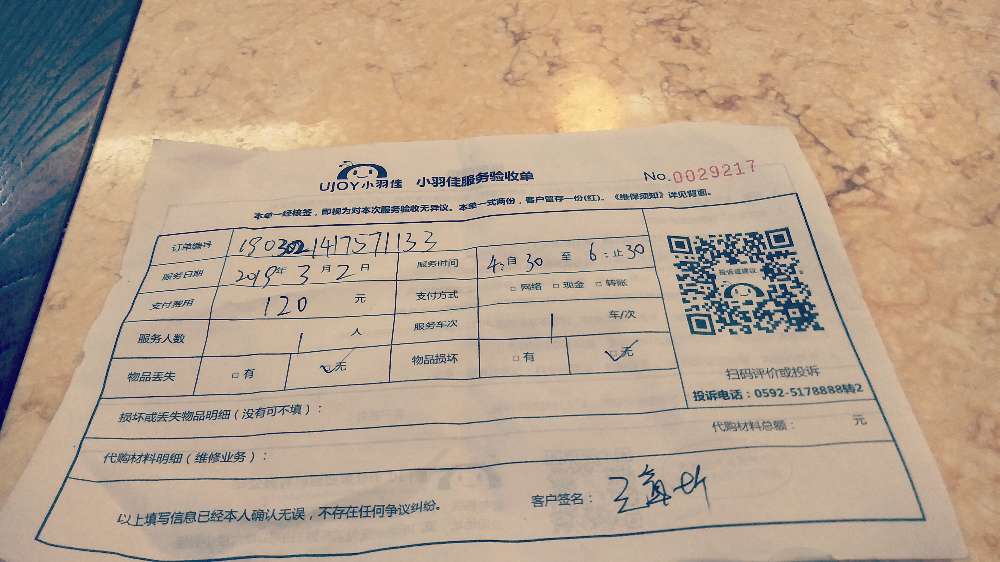 UJOY小羽佳 小羽佳服务验收单 No.0029217
本单一经核签，即视为对本次服务验收无异议。本单一式两份，客户留存一份(红)。《维保须知》详见背面。
订单编号 1903021417571133
服务日期 2019年3月2日 服务时间 4:自30至6:止30
支付费用 120元 支付方式 □网络 □现金 □转账
服务人数 1人 服务车次 1车/次
物品丢失 □有 ☑无 物品损坏 □有 ☑无
投诉或建议
扫码评价或投诉
投诉电话：0592-5178888转2
损坏或丢失物品明细（没有可不填）：
代购材料总额： 元
代购材料明细（维修业务）：
以上填写信息已经本人确认无误，不存在任何争议纠纷。 客户签名：